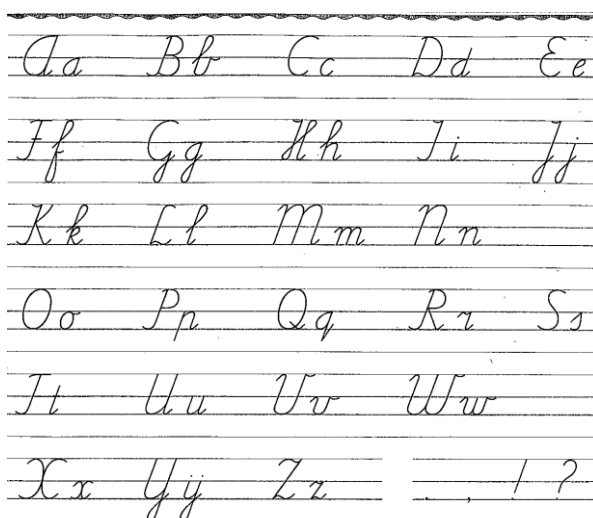 Aa Bb Cc Dd Ee
Ff Gg Hh Ii Jj
Kk Ll Mm Nn
Oo Pp Qq Rr Ss
Tt Uu Vv Ww
Xx Yÿ Zz . , ! ?